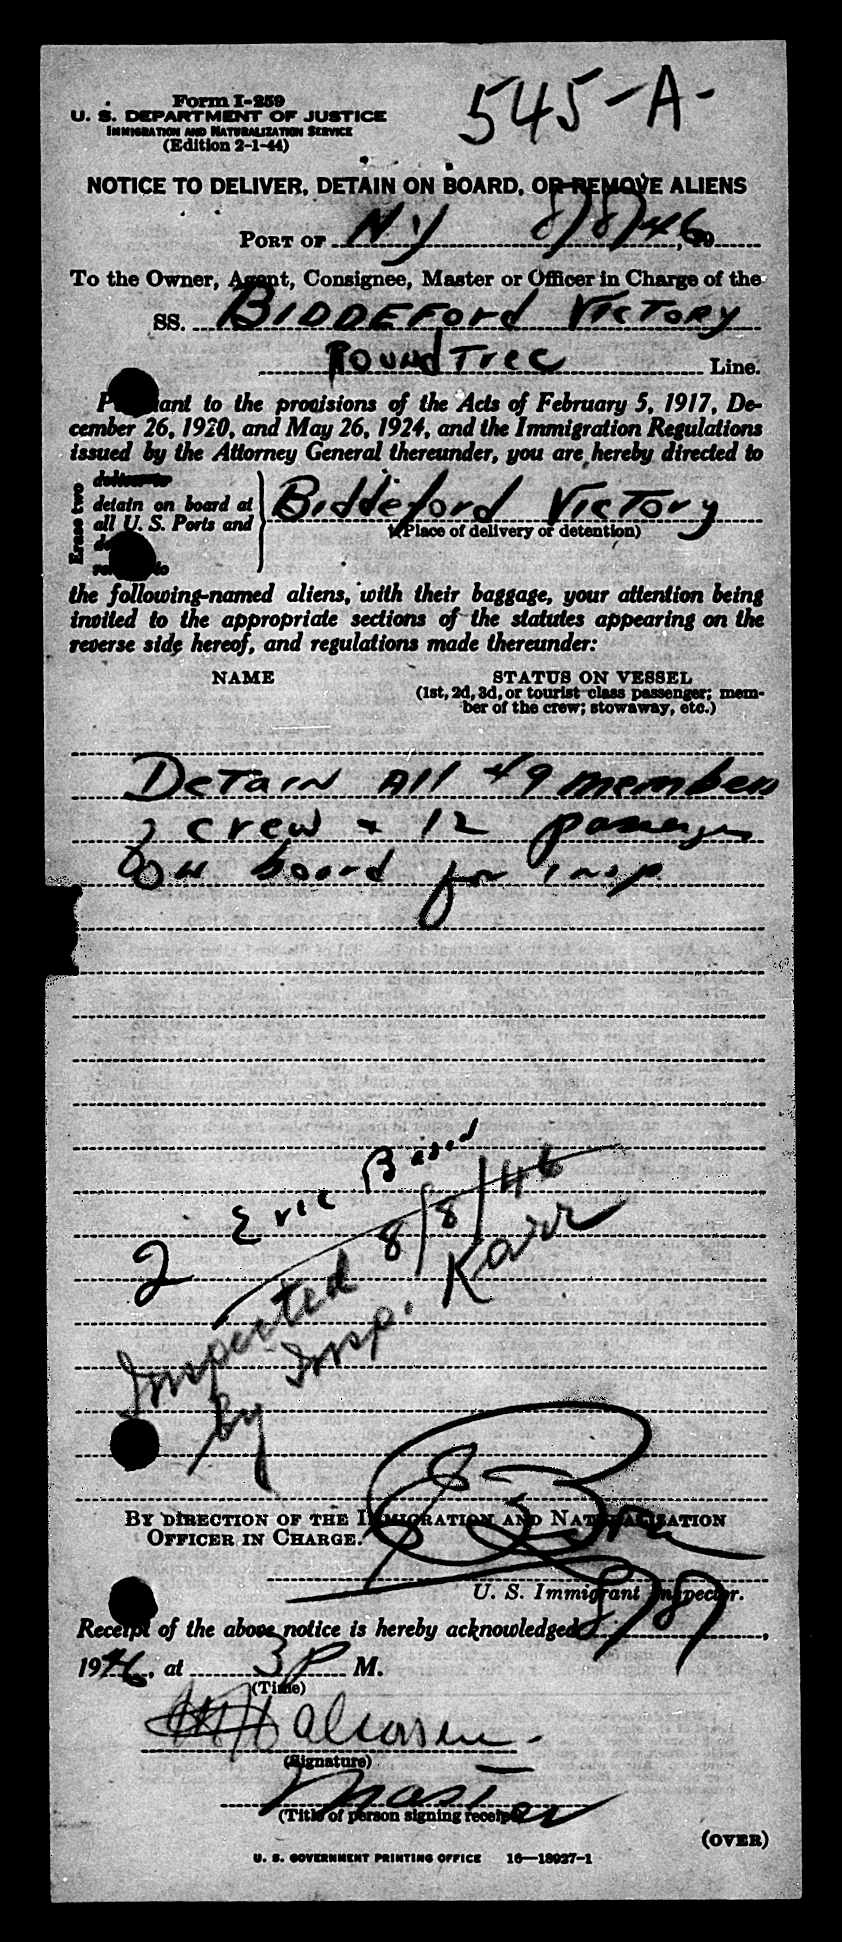 545-A-
Form I-259
U. S. DEPARTMENT OF JUSTICE
IMMIGRATION AND NATURALIZATION SERVICE
(Edition 2-1-44)
NOTICE TO DELIVER, DETAIN ON BOARD, OR REMOVE ALIENS
PORT OF NY 8/8/46, 19
To the Owner, Agent, Consignee, Master or Officer in Charge of the
SS. BIDDEFord VICTORY
Round Tree Line.
Pursuant to the provisions of the Acts of February 5, 1917, De-
cember 26, 1920, and May 26, 1924, and the Immigration Regulations
issued by the Attorney General thereunder, you are hereby directed to
Erase two
deliver to
detain on board at
all U. S. Ports and
Biddeford Victory
(Place of delivery or detention)
the following-named aliens, with their baggage, your attention being
invited to the appropriate sections of the statutes appearing on the
reverse side hereof, and regulations made thereunder:
NAME STATUS ON VESSEL
(1st, 2d, 3d, or tourist class passenger; mem-
ber of the crew; stowaway, etc.)
Detain All 49 members
of crew + 12 passengers
On board for insp
2 Eric Basin
Inspected 8/8/46
by Insp. Karr
BY DIRECTION OF THE IMMIGRATION AND NATURALISATION
OFFICER IN CHARGE.
U. S. Immigrant Inspector.
Receipt of the above notice is hereby acknowledged 8/8/,
1946, at 3 P M.
(Time)
(Signature)
Master
(Title of person signing receipt)
(OVER)
U. S. GOVERNMENT PRINTING OFFICE 16—18927-1